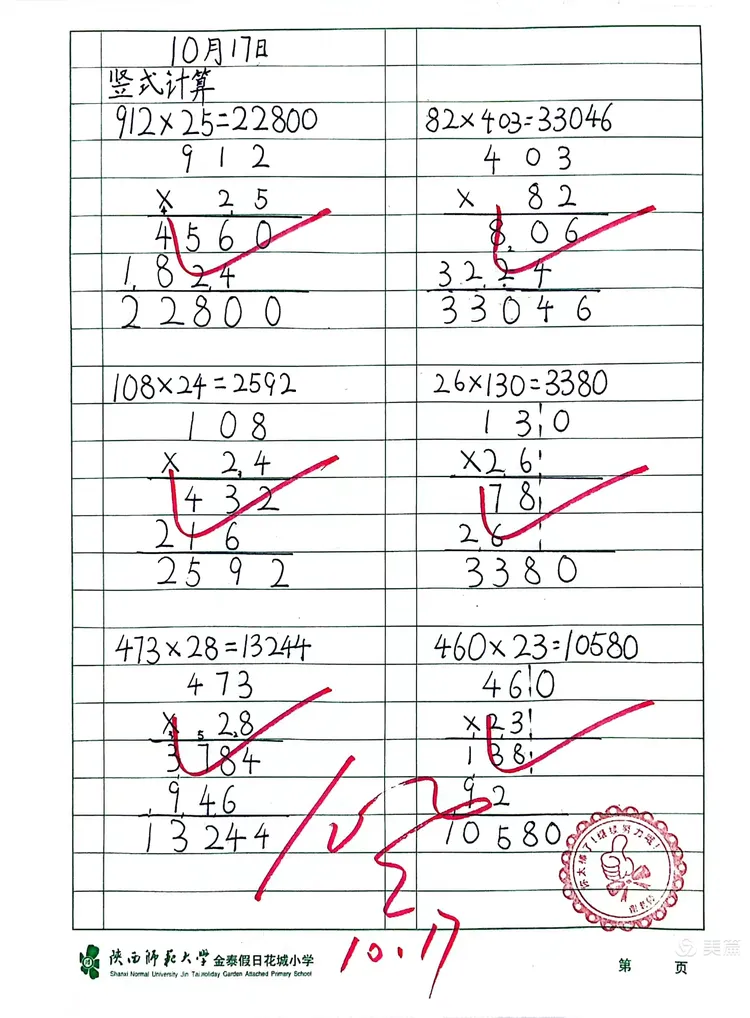 10月17日
竖式计算
912×25=22800
9 1 2
× 2 5
4 5 6 0
1 8 2 4
2 2 8 0 0
82×403=33046
4 0 3
× 8 2
8 0 6
3 2 2 4
3 3 0 4 6
108×24=2592
1 0 8
× 2 4
4 3 2
2 1 6
2 5 9 2
26×130=3380
1 3 0
× 2 6
7 8
2 6
3 3 8 0
473×28=13244
4 7 3
× 2 8
3 7 8 4
9 4 6
1 3 2 4 4
460×23=10580
4 6 0
× 2 3
1 3 8
9 2
1 0 5 8 0
10.17
你太棒了!继续努力哦!
陕西师范大学金泰假日花城小学
Shanxi Normal University Jin Tai Holiday Garden Attached Primary School
第 页
美篇